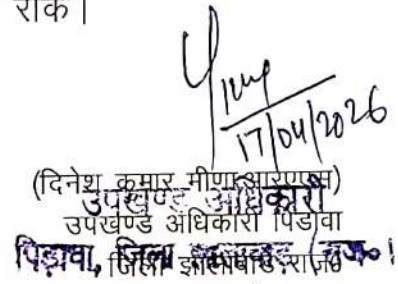 रोक।
17/04/2026
(दिनेश कुमार मीणा आरएएस)
उपखण्ड अधिकारी
उपखण्ड अधिकारी पिडावा
पिड़ावा, जिला झालावाड़ (राज०)
जिला झालावाड राज०